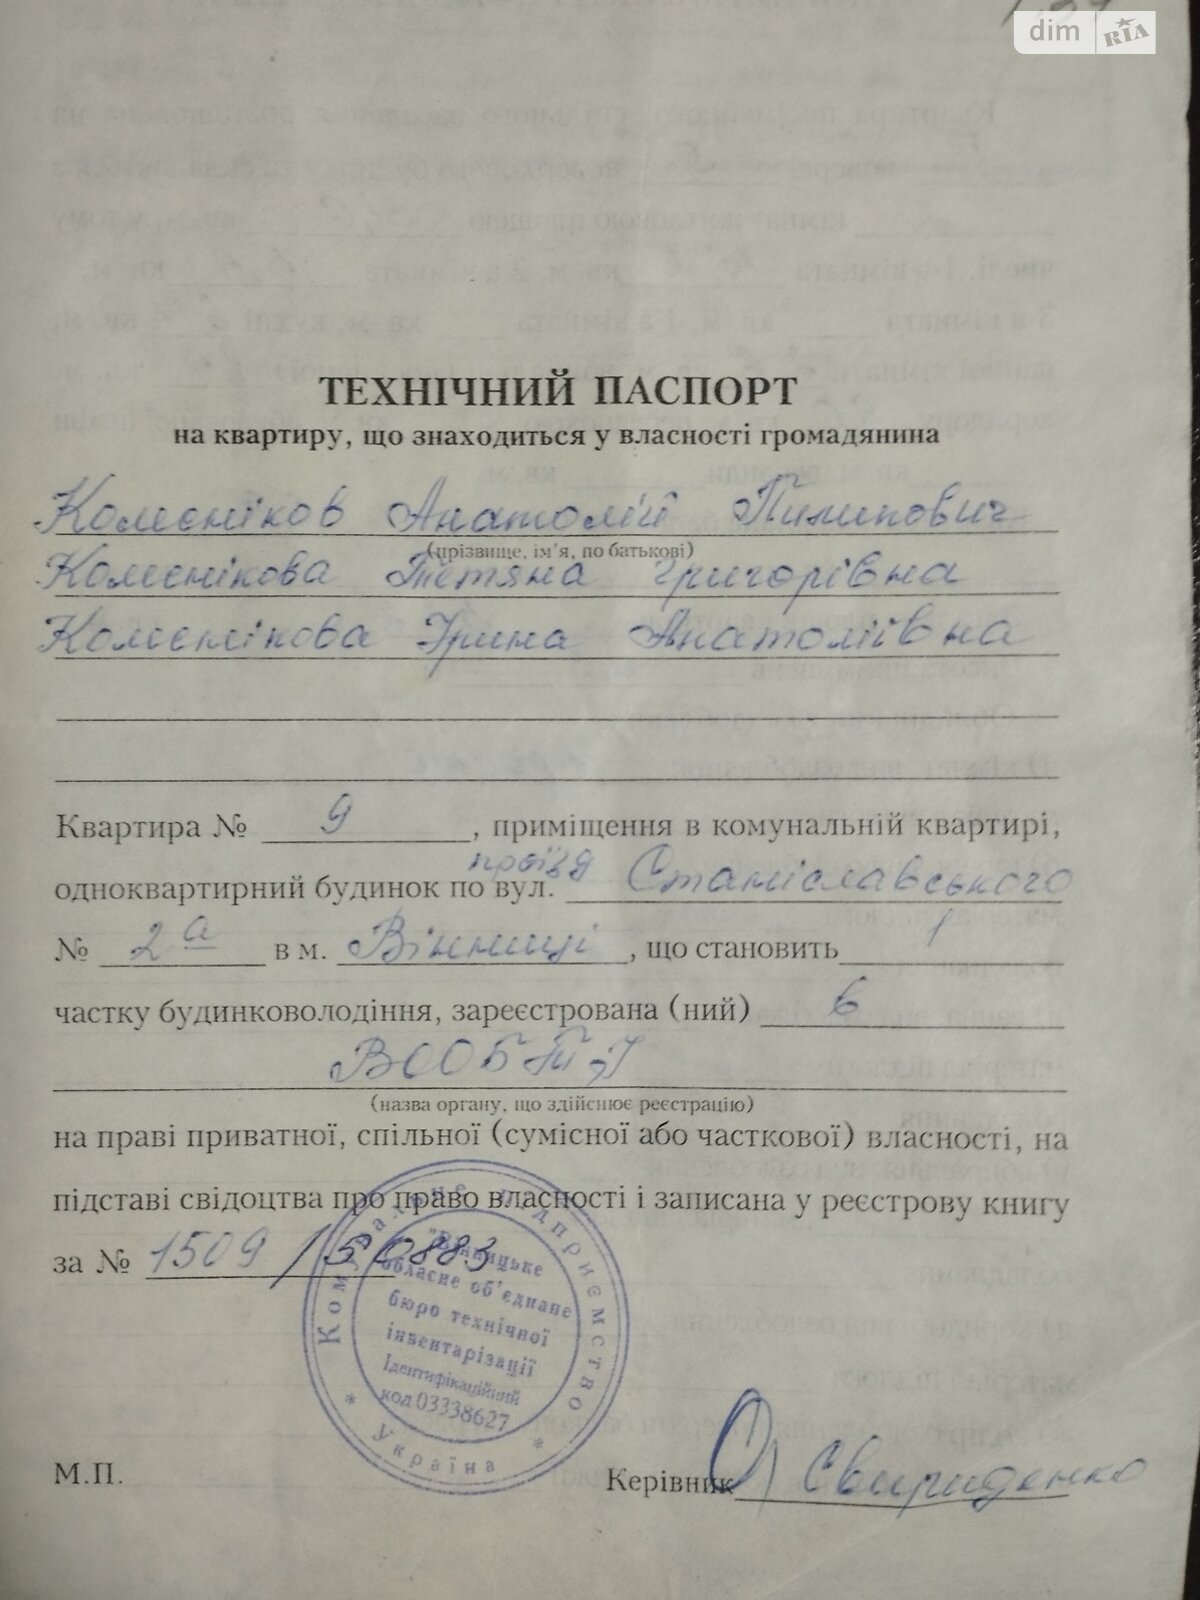 dim RIA
ТЕХНІЧНИЙ ПАСПОРТ
на квартиру, що знаходиться у власності громадянина
Колєсніков Анатолій Пилипович
(прізвище, ім'я, по батькові)
Колєснікова Тетяна Григорівна
Колєснікова Ірина Анатоліївна
Квартира № 9, приміщення в комунальній квартирі,
проїзд
одноквартирний будинок по вул. Станіславського
№ 2а в м. Вінниці, що становить 1
частку будинковолодіння, зареєстрована (ний) в
ВООБТІ
(назва органу, що здійснює реєстрацію)
на праві приватної, спільної (сумісної або часткової) власності, на
підставі свідоцтва про право власності і записана у реєстрову книгу
за № 1509 / 50883
Комунальне підприємство
"Вінницьке
обласне об'єднане
бюро технічної
інвентаризації
Ідентифікаційний
код 03338627
* Україна *
М.П.
Керівник Свириденко